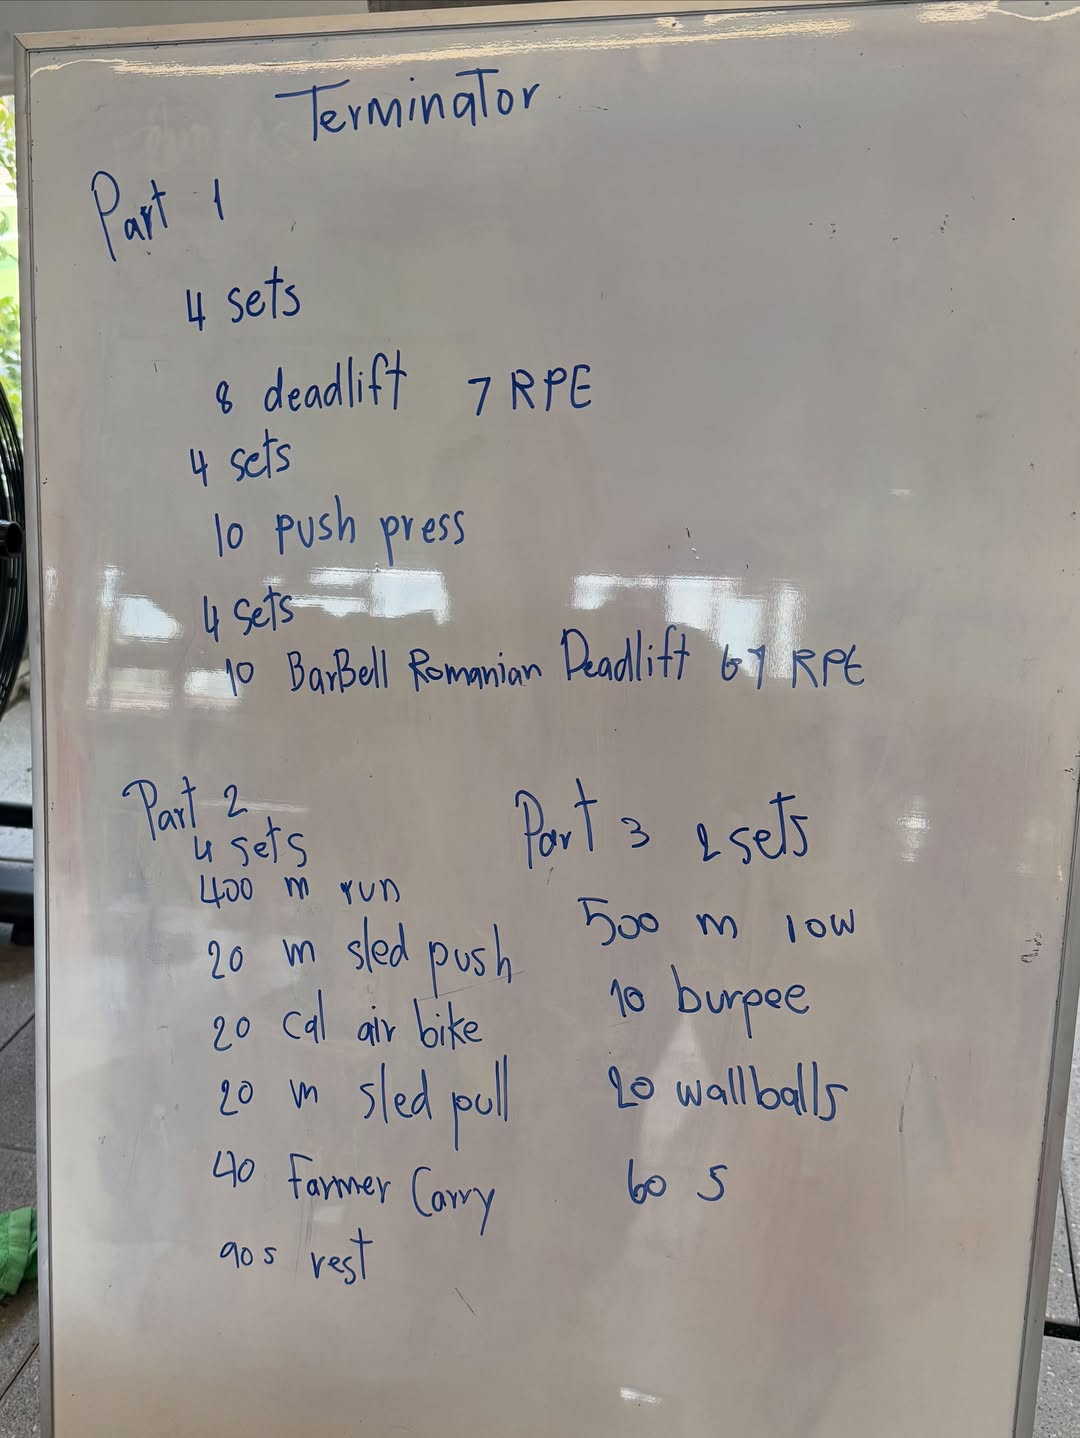 Terminator
Part 1
4 sets
8 deadlift 7 RPE
4 sets
10 push press
4 sets
10 BarBell Romanian Deadlift 67 RPE
Part 2
4 sets
400 m run
20 m sled push
20 cal air bike
20 m sled pull
40 Farmer Carry
90s rest
Part 3 2 sets
500 m row
10 burpee
20 wallballs
60 s